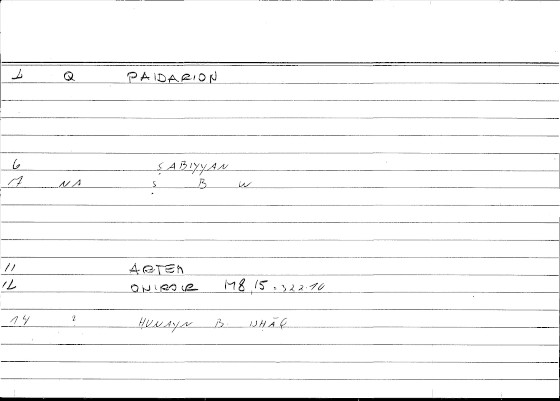 1 Q PAIDARION
6 ṢABIYYAN
17 NA Ṣ B W
11 ARTEM
12 ONIROCR 148,15.322.16
14 ? HUNAYN B. ISHĀQ